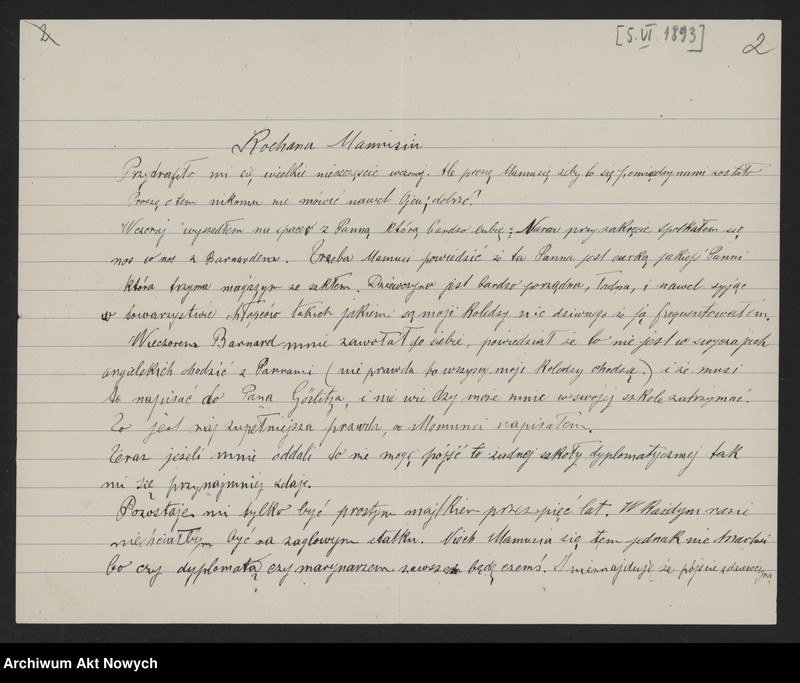 2
[5. VI. 1893]
2
Kochana Mamusiu
Przytrafiło mi się wielkie nieszczęście wczoraj. Ale proszę Mamusię żeby to się pomiędzy nami zostało
Proszę o tem nikomu nie mówić nawet Ojcu; dobrze?
Wczoraj wyszedłem na spacer z Panną którą bardzo lubię; Naraz przy zakręcie spotkałem się
nos w nos z Barnardem. Trzeba Mamuci powiedzieć że ta Panna jest curką jakiejś Panni
która trzyma magazyn ze szkłem. Dziewczyna jest bardzo porządna, ładna, i nawet żyjąc
w towarzystwie chłopców takich jakiemi są moji koledzy nic dziwnego że ją frequentowałem.
Wieczorem Barnard mnie zawołał do siebie, powiedział że to nie jest w zwyczajach
angielskich chodzić z Pannami (nie prawda bo wszyscy moje koledzy chodzą) i że musi
to napisać do Pana Görlitza, i nie wie czy może mnie w swojej szkole zatrzymać.
To jest naj zupełniejsza prawda, co Mamunci napisałem.
Teraz jeżeli mnie oddali to nie mogę pójść to żadnej szkoły dyplomatycznej tak
mi się przynajmniej zdaje.
Pozostaje mi tylko być prostym majtkiem przez pięć lat. W każdym razie
niechciałbym być na żaglowym statku. Niech Mamusia się tem jednak nie martwi
bo czy dyplomatą czy marynarzem zawsze będę czemś. I nieznajduję że pójście z dziewczyną
Archiwum Akt Nowych